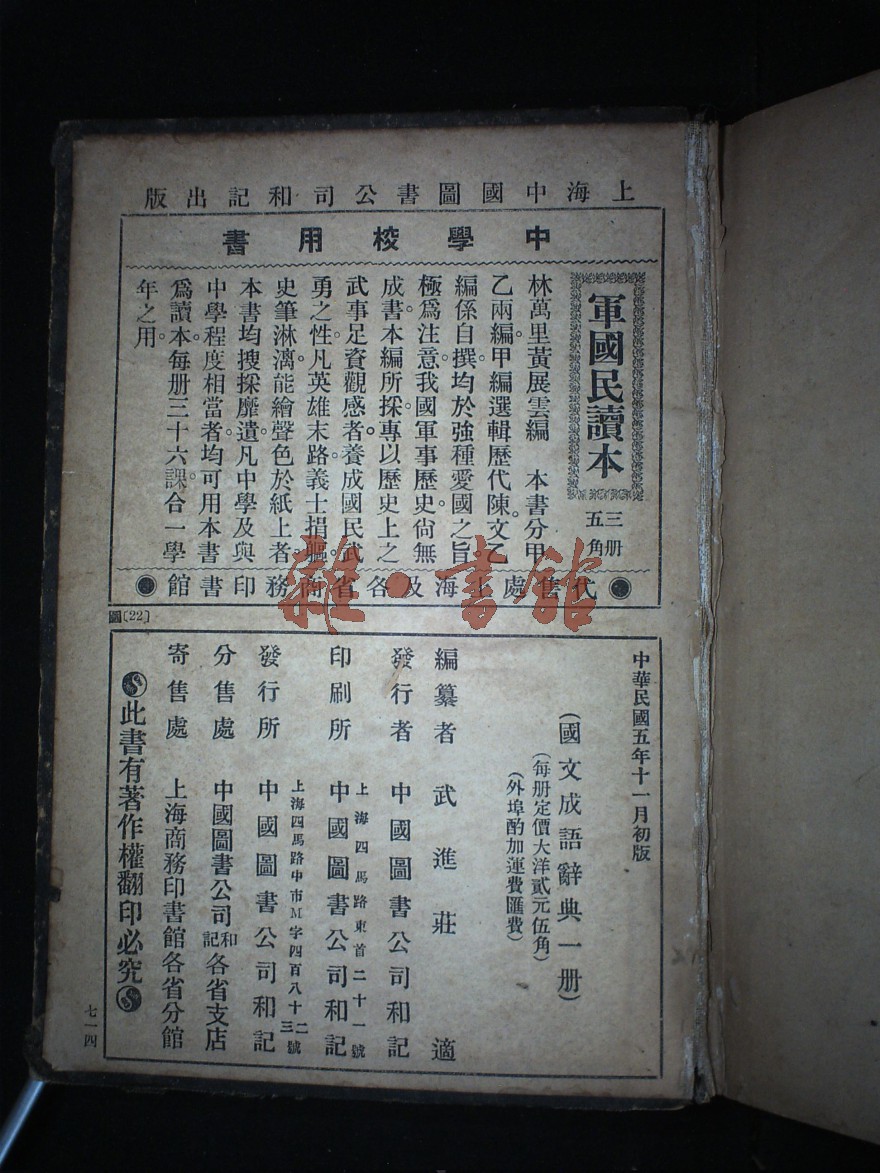 上海中國圖書公司和記出版
中學校用書
軍國民讀本
三册
五角
林萬里黃展雲編　本書分甲
乙兩編甲編選輯歷代陳文乙
編係自撰均於強種愛國之旨
極爲注意。我國軍事歷史尙無
成書。本編所採專以歷史上之
武事足資觀感者。養成國民武
勇之性。凡英雄末路義士捐軀。
史筆淋漓。能繪聲色於紙上者。
本書均搜採靡遺。凡中學及與
中學程度相當者。均可用本書
爲讀本。每册三十六課。合一學
年之用。
代售處上海及各省商務印書館
圖〔22〕
中華民國五年十一月初版
（國文成語辭典一册）
（每册定價大洋貳元伍角）
（外埠酌加運費匯費）
編纂者　武進莊　適
發行者　中國圖書公司和記
上海四馬路東首二十一號
印刷所　中國圖書公司和記
上海四馬路中市M字四百八十二三號
發行所　中國圖書公司和記
分售處　中國圖書公司和記各省支店
寄售處　上海商務印書館各省分館
此書有著作權翻印必究
七一四
雜·書館